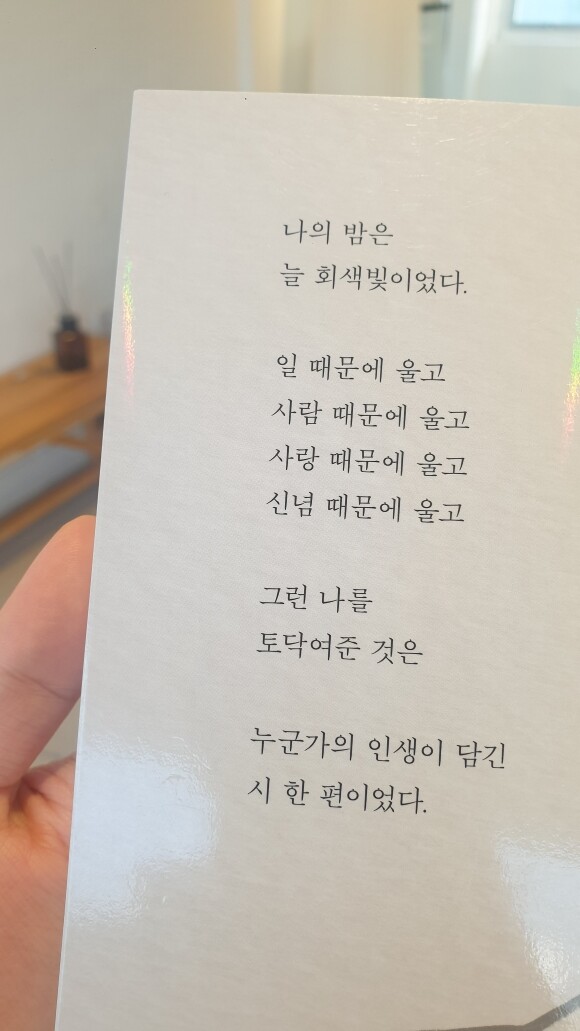 나의 밤은
늘 회색빛이었다.
일 때문에 울고
사람 때문에 울고
사랑 때문에 울고
신념 때문에 울고
그런 나를
토닥여준 것은
누군가의 인생이 담긴
시 한 편이었다.